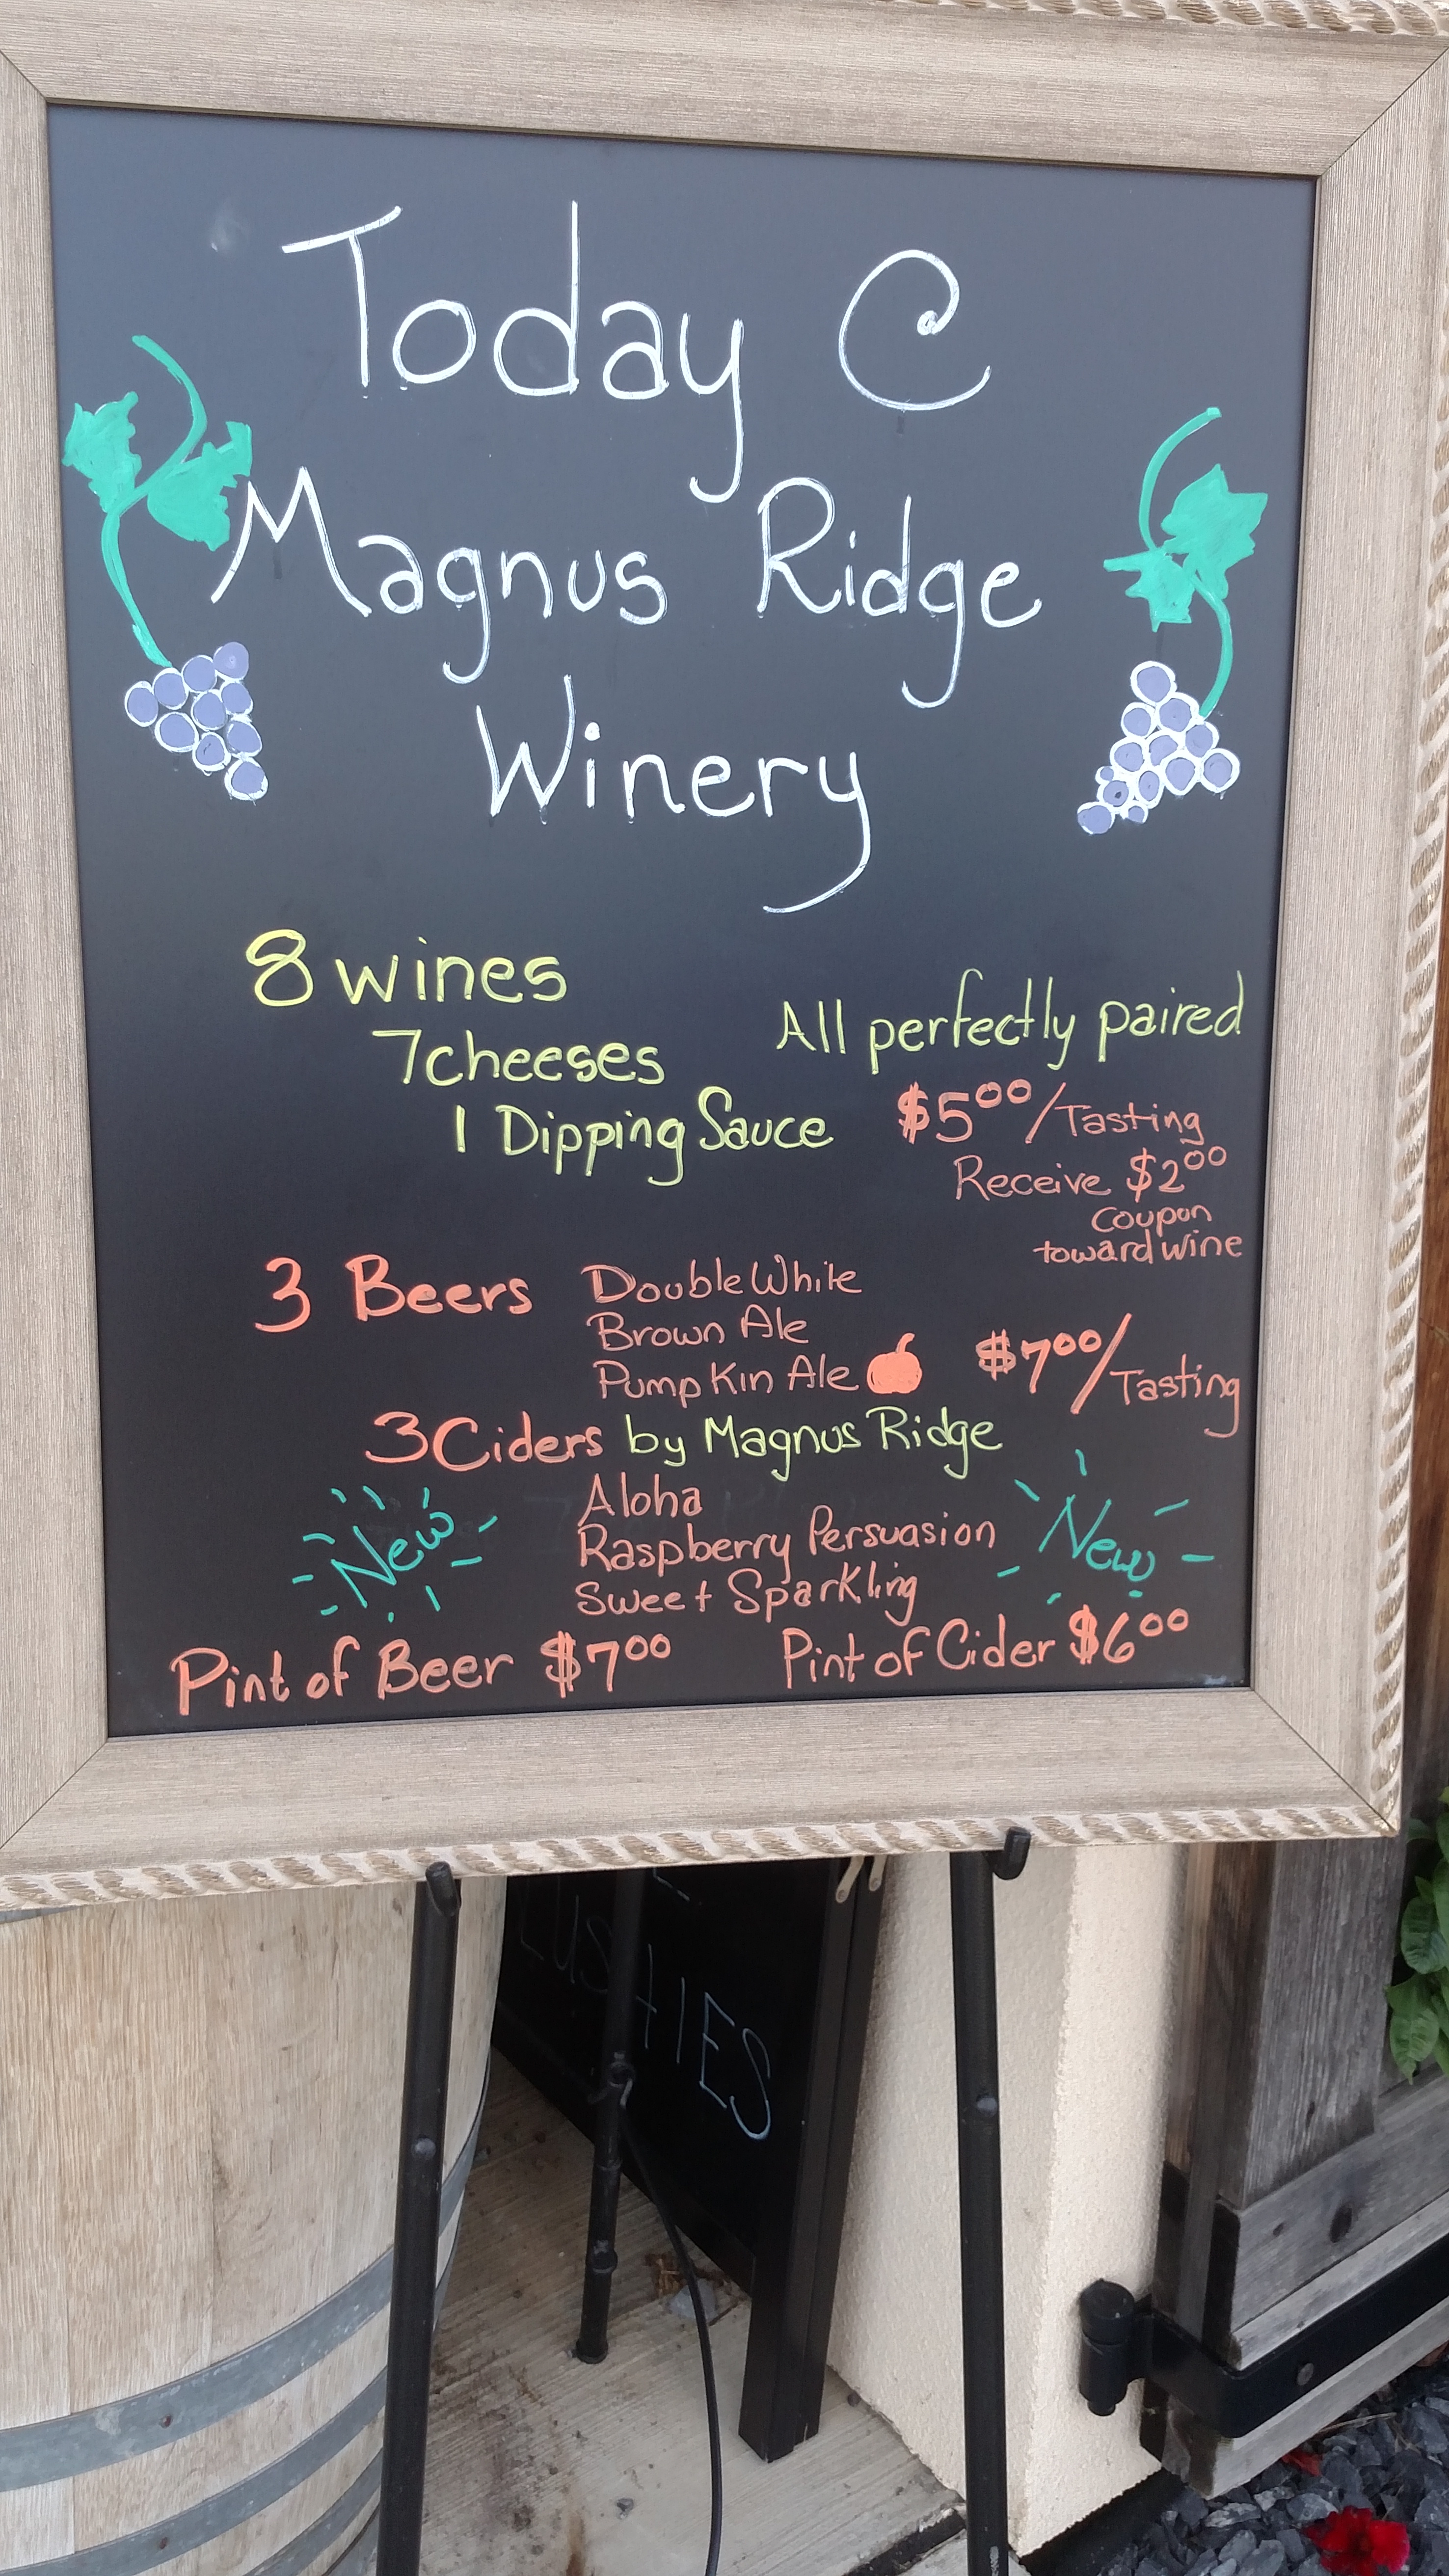 Today C
Magnus Ridge
Winery
8 wines
7 cheeses
1 Dipping Sauce
All perfectly paired
$500/Tasting
Receive $200
coupon
toward wine
3 Beers
Double White
Brown Ale
Pumpkin Ale
$700/Tasting
3 Ciders by Magnus Ridge
New
Aloha
Raspberry Persuasion
Sweet Sparkling
New
Pint of Beer $700
Pint of Cider $600